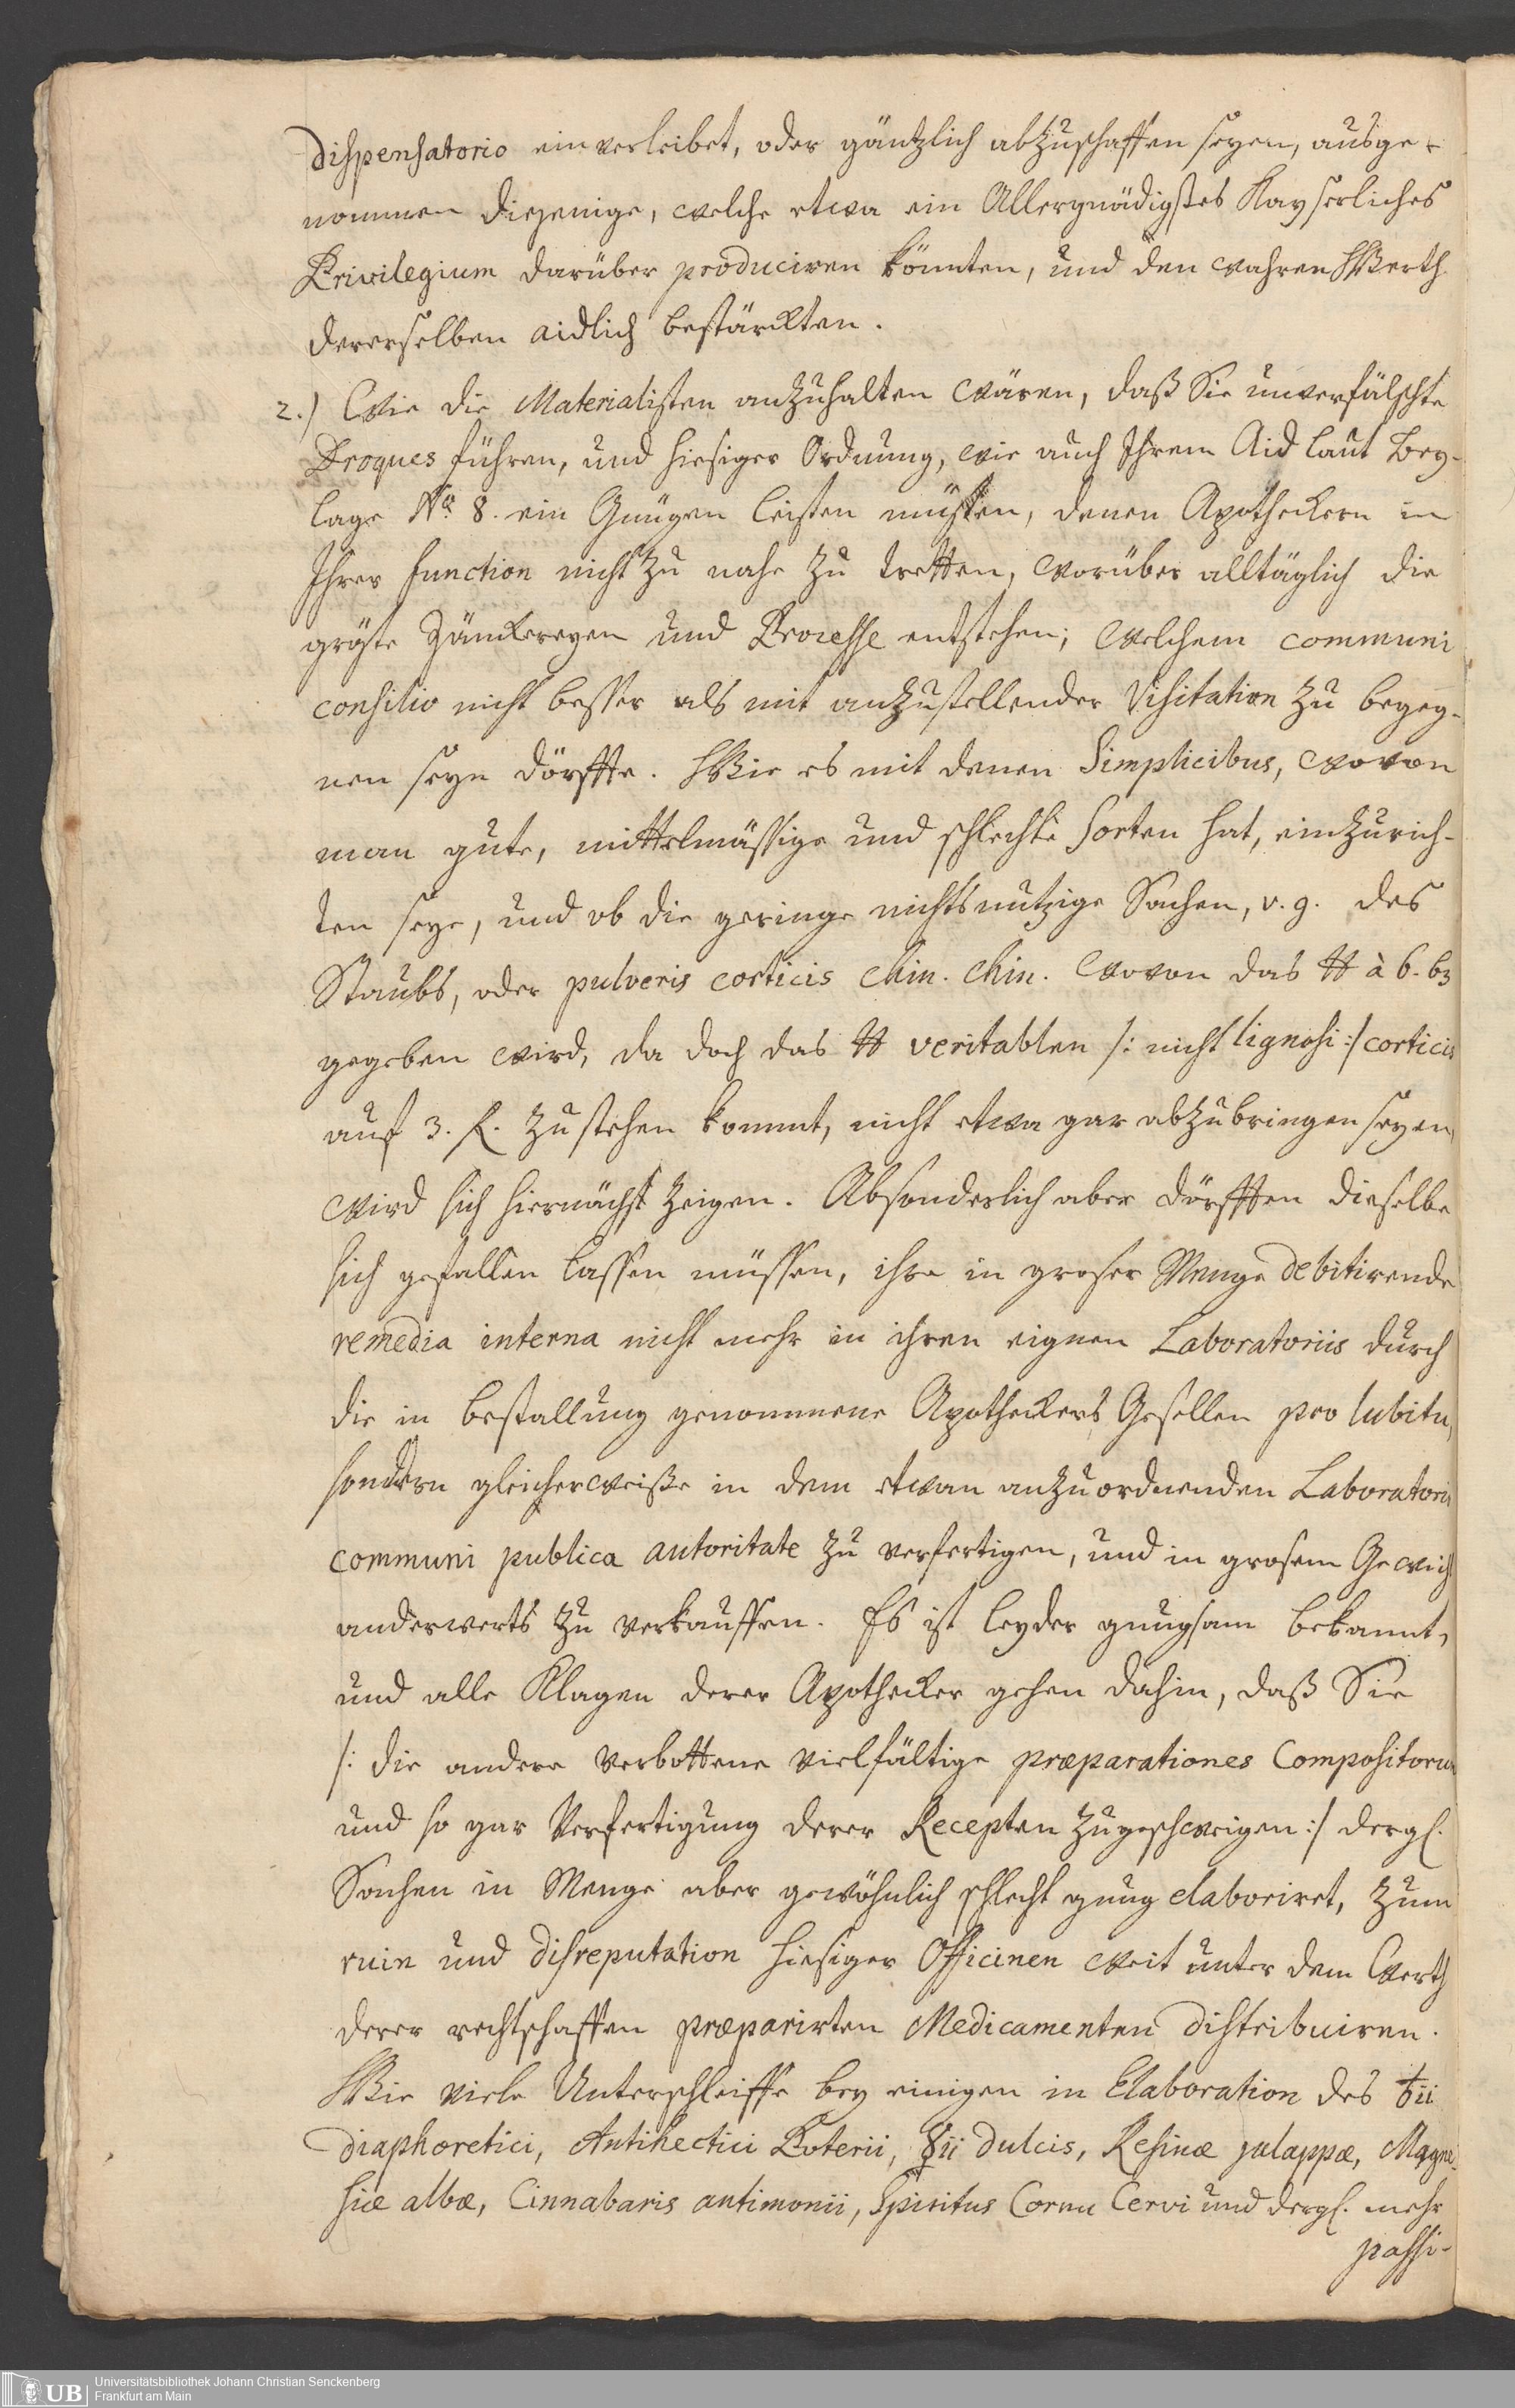 Dispensatorio einverleibet, oder gäntzlich abzuschaffen seyen, ausge-
nommen diejenige, welche etwa ein Allergnädigstes Kayserliches
Privilegium darüber produciren könnten, und den wahren Werth
dererselben aidlich bestärckten.
2.) Wie die Materialisten anzuhalten wären, daß Sie unverfälschte
Droques führen, und hiesiger Ordnung, wie auch Ihrem Aid laut Bey-
lage No. 8. ein Gnügen leisten müssen, denen Apotheckern in
Ihrer function nicht zu nahe zu tretten, worüber alltäglich die
gröste Zänckereyen und Processe entstehen; welchem communi
consilio nicht besser als mit anzustellender Visitation zu begeg-
nen seyn dörffte. Wie es mit denen Simplicibus, wovon
man gute, mittelmässige und schlechte Sorten hat, einzurich-
ten seye, und ob die geringe nichtsnutzige Sachen, v. g. des
Staubs, oder pulveris corticis Chin. Chin. wovon das ℔ à 6. bz
gegeben wird, da doch das ℔ veritablen /: nicht lignosi :/ corticis
auf 3. f. zu stehen kommt, nicht etwa gar abzubringen seyen,
wird sich hiernächst zeigen. Absonderlich aber dörfften dieselbe
sich gefallen lassen müssen, ihre in groser Menge debitirende
remedia interna nicht mehr in ihren eignen Laboratoriis durch
die in Bestallung genommene Apotheckers Gesellen pro lubitu,
sondern gleicherweiße in dem etwan anzuordnenden Laboratorio
communi publica autoritate zu verfertigen, und in grosem Gewicht
anderwerts zu verkauffen. Es ist leyder gnugsam bekannt,
und alle Klagen derer Apothecker gehen dahin, daß Sie
/: die andere verbottene vielfältige præparationes Compositorum
und so gar Verfertigung derer Recepten zugeschweigen :/ dergl.
Sachen in Menge aber gewöhnlich schlecht gnug elaboriret, zum
ruin und disreputation hiesiger Officinen weit unter dem Werth
derer rechtschaffen præparirten Medicamenten distribuiren.
Wie viele Unterschleiffe bey einigen in Elaboration des ♁ii
diaphoretici, Antihectici Poterii, ☿ii dulcis, Resinæ jalappæ, Magne-
siæ albæ, Cinnabaris antimonii, Spiritus Cornu Cervi und dergl. mehr
passi-
UB Universitätsbibliothek Johann Christian Senckenberg
Frankfurt am Main